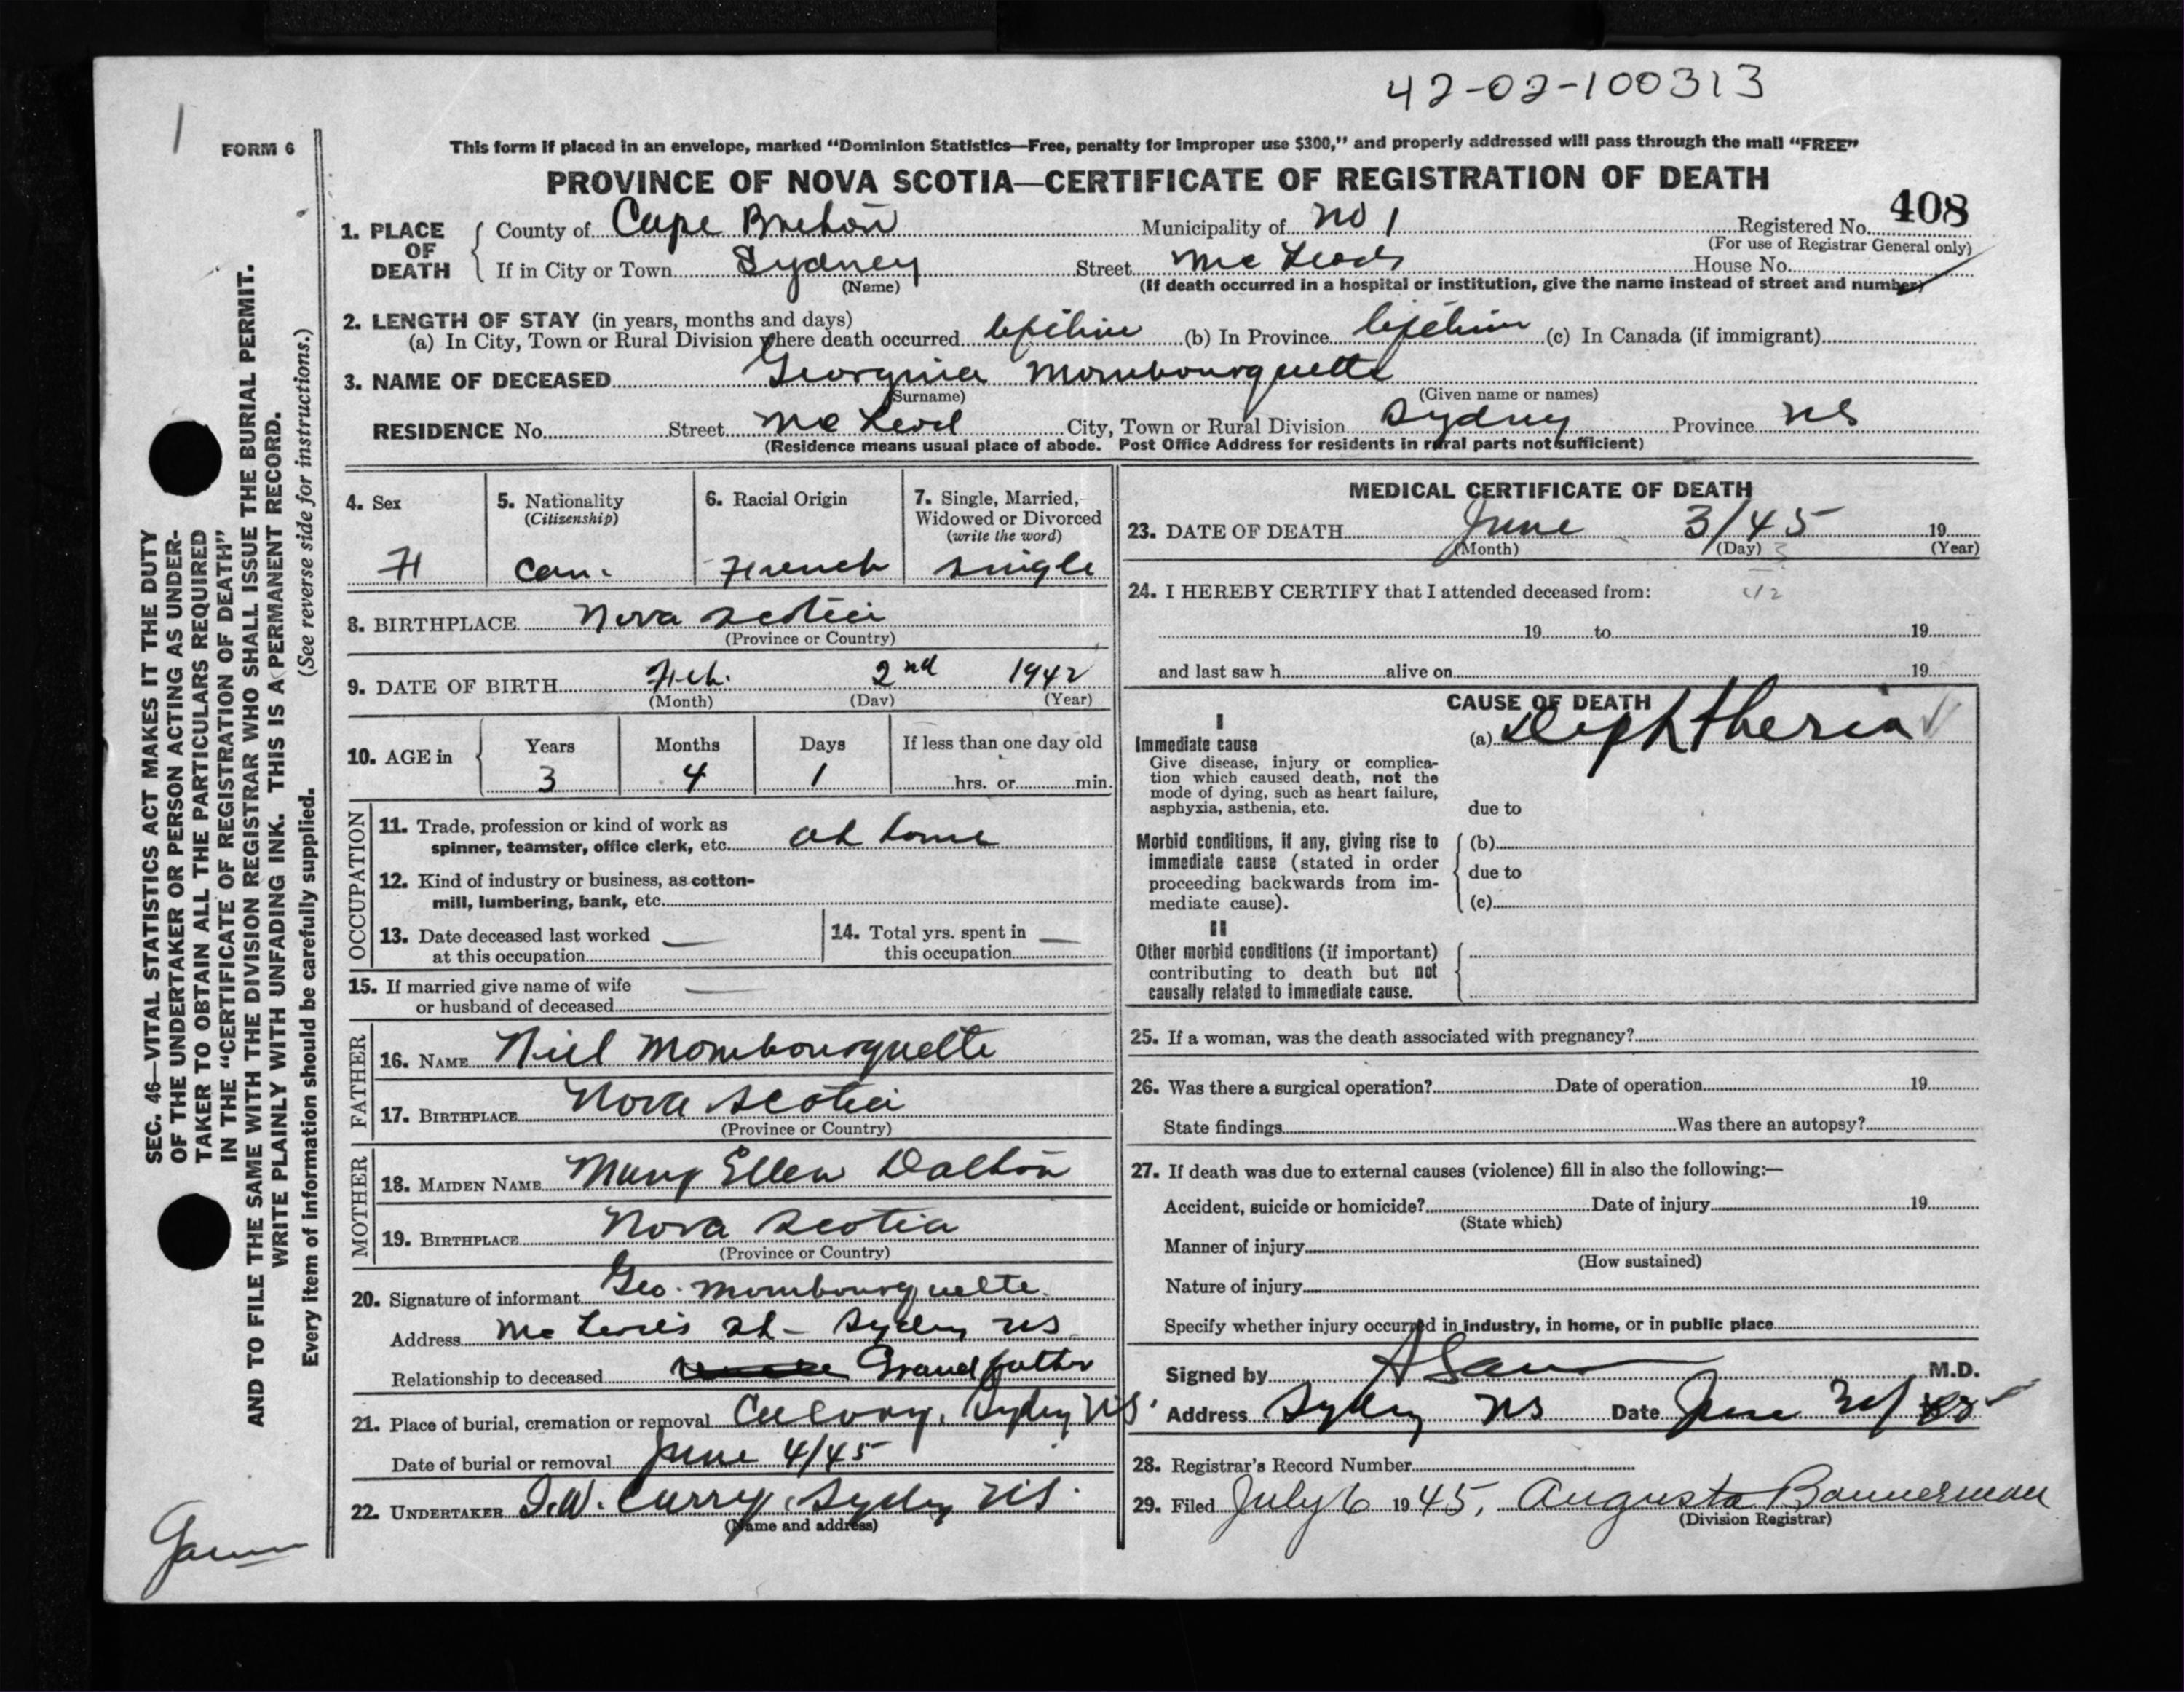 42-02-100313
1
FORM 6
This form if placed in an envelope, marked “Dominion Statistics—Free, penalty for improper use $300,” and properly addressed will pass through the mail “FREE”
PROVINCE OF NOVA SCOTIA—CERTIFICATE OF REGISTRATION OF DEATH
408
1. PLACE OF DEATH
County of Cape Breton Municipality of No 1 Registered No.
(For use of Registrar General only)
If in City or Town Sydney Street McLeods House No.
(Name) (If death occurred in a hospital or institution, give the name instead of street and number)
2. LENGTH OF STAY (in years, months and days)
(a) In City, Town or Rural Division where death occurred lifetime (b) In Province lifetime (c) In Canada (if immigrant)
3. NAME OF DECEASED Georgina Mombourquette
(Surname) (Given name or names)
RESIDENCE No. Street McLeod City, Town or Rural Division Sydney Province NS
(Residence means usual place of abode. Post Office Address for residents in rural parts not sufficient)
4. Sex 5. Nationality 6. Racial Origin 7. Single, Married,
(Citizenship) Widowed or Divorced
(write the word)
F Can. French single
8. BIRTHPLACE Nova Scotia
(Province or Country)
9. DATE OF BIRTH Feb. 2nd 1942
(Month) (Day) (Year)
10. AGE in Years Months Days If less than one day old
3 4 1 hrs. or min.
OCCUPATION
11. Trade, profession or kind of work as
spinner, teamster, office clerk, etc. at home
12. Kind of industry or business, as cotton-
mill, lumbering, bank, etc.
13. Date deceased last worked —
at this occupation
14. Total yrs. spent in —
this occupation
15. If married give name of wife —
or husband of deceased
FATHER
16. NAME Niel Mombourquette
17. BIRTHPLACE Nova Scotia
(Province or Country)
MOTHER
18. MAIDEN NAME Mary Ellen Dalton
19. BIRTHPLACE Nova Scotia
(Province or Country)
20. Signature of informant Geo. Mombourquette
Address McLeods St – Sydney NS
Relationship to deceased Grandfather
21. Place of burial, cremation or removal Calvary, Sydney NS.
Date of burial or removal June 4/45
22. UNDERTAKER Curry, Sydney NS.
(Name and address)
MEDICAL CERTIFICATE OF DEATH
23. DATE OF DEATH June 3/45 19
(Month) (Day) (Year)
24. I HEREBY CERTIFY that I attended deceased from:
19 to 19
and last saw h alive on 19
CAUSE OF DEATH
I
Immediate cause
Give disease, injury or complica-
tion which caused death, not the
mode of dying, such as heart failure,
asphyxia, asthenia, etc.
(a) Diphtheria
due to
Morbid conditions, if any, giving rise to
immediate cause (stated in order
proceeding backwards from im-
mediate cause).
(b)
due to
(c)
II
Other morbid conditions (if important)
contributing to death but not
causally related to immediate cause.
25. If a woman, was the death associated with pregnancy?
26. Was there a surgical operation? Date of operation 19
State findings Was there an autopsy?
27. If death was due to external causes (violence) fill in also the following:—
Accident, suicide or homicide? Date of injury 19
(State which)
Manner of injury
(How sustained)
Nature of injury
Specify whether injury occurred in industry, in home, or in public place
Signed by M.D.
Address Sydney NS Date June
28. Registrar's Record Number
29. Filed July 6 1945, Augusta Bannerman
(Division Registrar)
SEC. 46—VITAL STATISTICS ACT MAKES IT THE DUTY
OF THE UNDERTAKER OR PERSON ACTING AS UNDER-
TAKER TO OBTAIN ALL THE PARTICULARS REQUIRED
IN THE “CERTIFICATE OF REGISTRATION OF DEATH”
AND TO FILE THE SAME WITH THE DIVISION REGISTRAR WHO SHALL ISSUE THE BURIAL PERMIT.
WRITE PLAINLY WITH UNFADING INK. THIS IS A PERMANENT RECORD.
Every item of information should be carefully supplied. (See reverse side for instructions.)